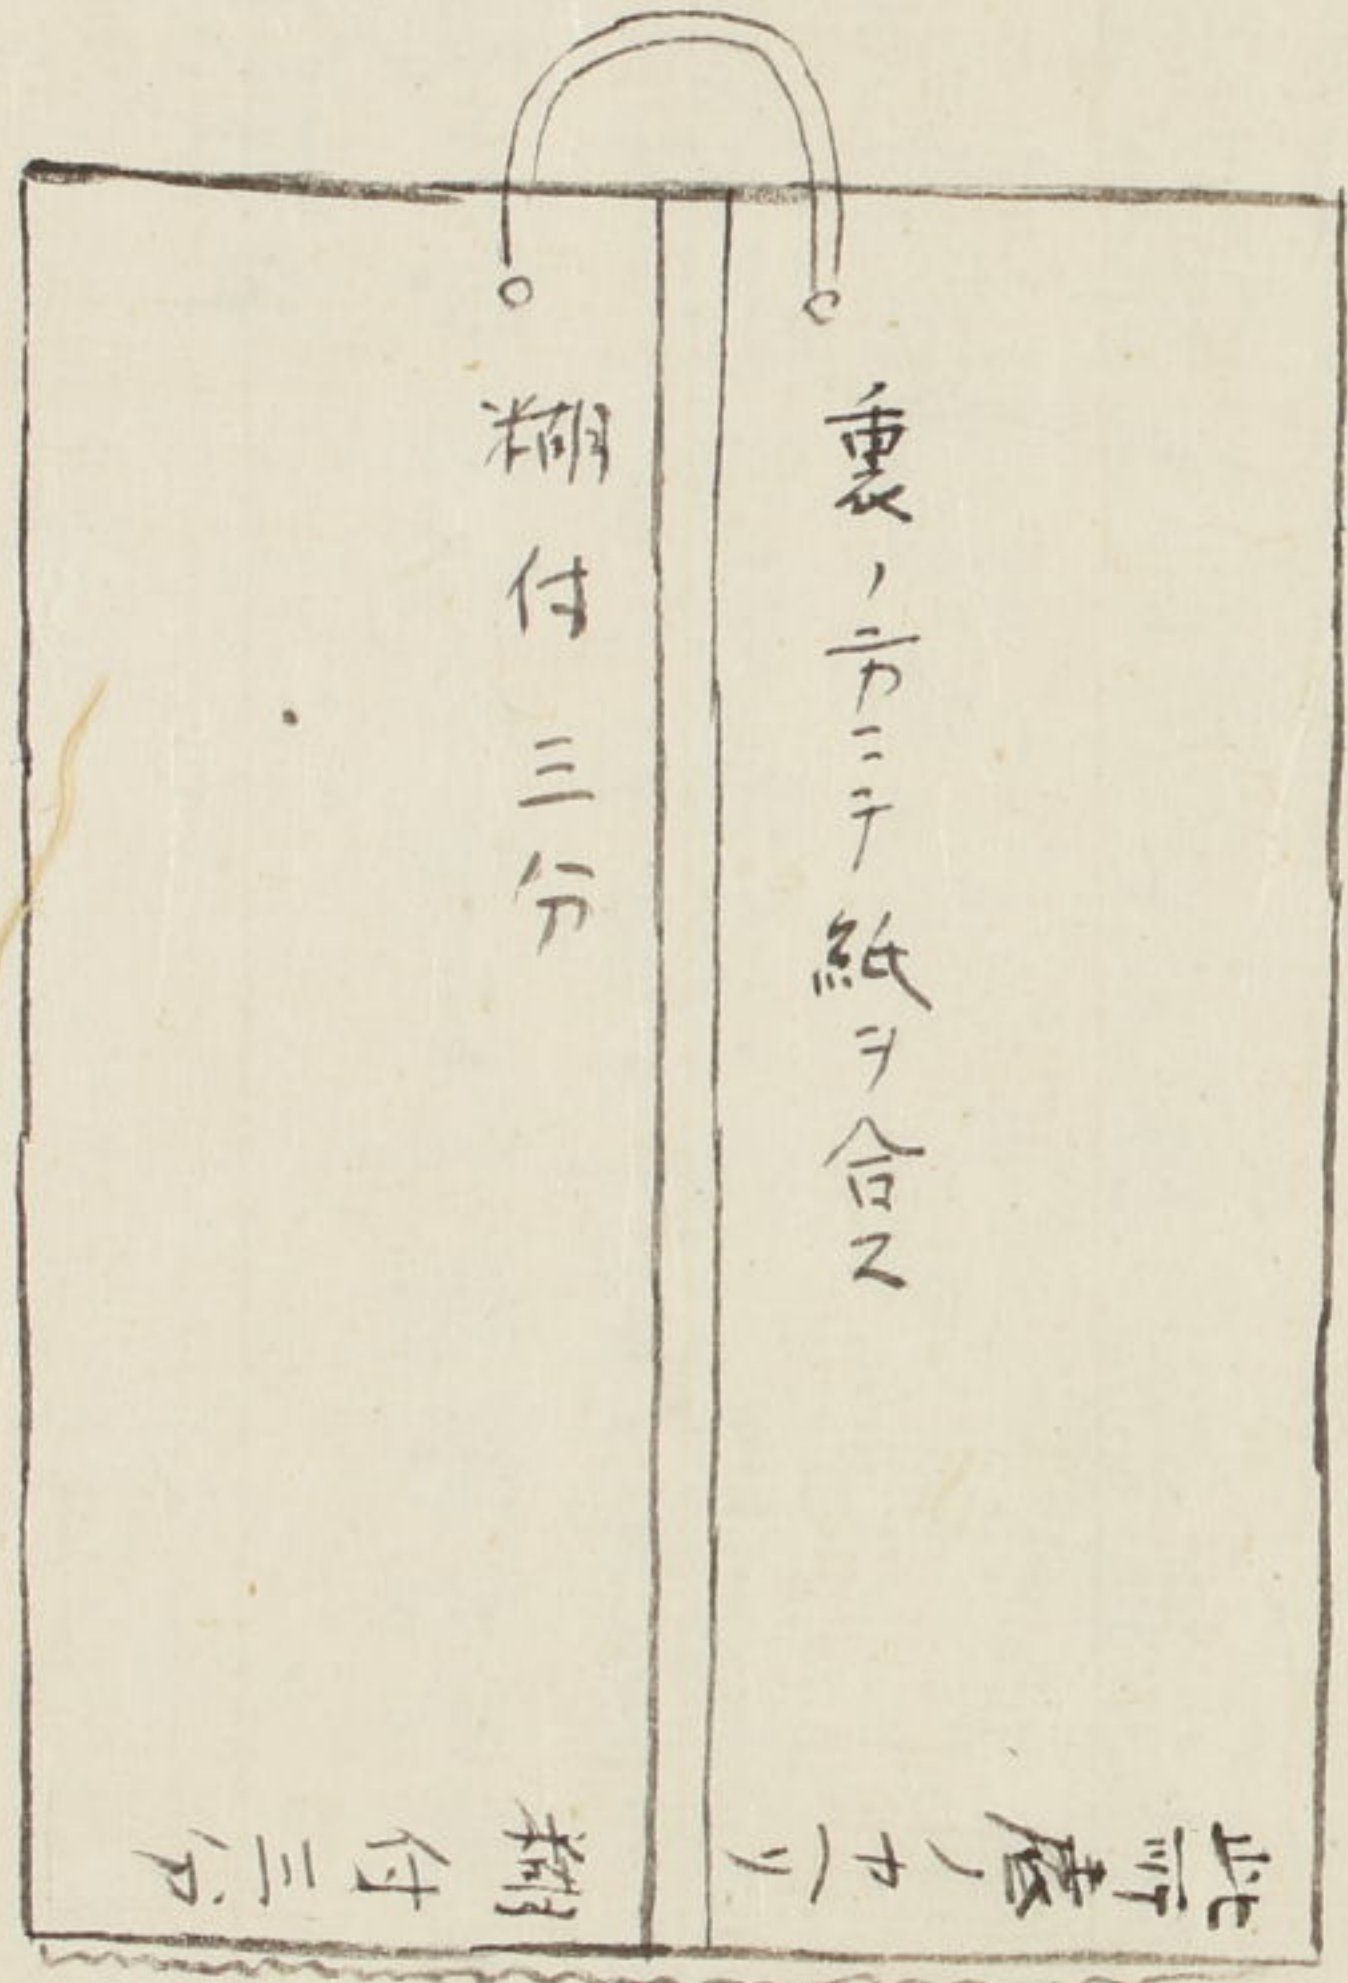 裏ノ方ニテ紙ヲ合ス
糊付三分
此所ノカヘリ
糊付三分